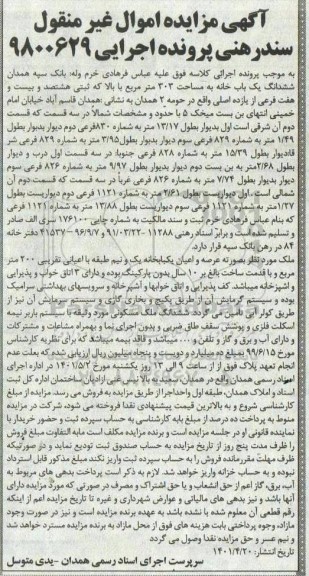 آگهی مزایده اموال غیر منقول
سند رهنی پرونده اجرایی ۹۸۰۰۶۲۹
به موجب پرونده اجرائی کلاسه فوق علیه عباس فرهادی خرم وله: بانک سپه همدان
ششدانگ یک باب خانه به مساحت ۳۰۳ متر مربع با بالا که ثبتی هشتصد و بیست و
هفت فرعی از یازده اصلی واقع در حومه ۲ همدان به نشانی: همدان قاسم آباد خیابان امام
خمینی انتهای بن بست میخک ۵ با حدود و مشخصات شمالاً در سه قسمت که قسمت
دوم آن شرقی است اول بدیوار بطول ۱۳/۱۷ متر به شماره ۸۳۰فرعی دوم دیوار بدیوار بطول
۱/۴۹ متر به شماره ۸۲۹ فرعی سوم دیوار بدیوار بطول ۳/۹۵ متر به شماره ۸۲۹ فرعی شر
قادیوار بطول ۱۵/۳۹ متر به شماره ۸۲۸ فرعی جنوبا: در سه قسمت اول درب و دیوار
بطول ۲/۶۸متر به بن بست دوم دیوار بدیوار بطول ۹/۹۷ متر به شماره ۸۲۶ فرعی سوم
دیوار بدیوار بطول ۷/۷۴ متر به شماره ۸۲۶ فرعی غرباً در سه قسمت که قسمت دوم آن
شمالی است اول دیواریست بطول ۲/۶۱ متر به شماره ۱۱۲۱ فرعی دوم دیواریست بطول
۱/۲۷متر به شماره ۱۱۲۱ فرعی سوم دیواریست بطول ۱۳/۸۸ متر به شماره ۱۱۲۱ فرعی
که بنام عباس فرهادی خرم ثبت و سند مالکیت به شماره چاپی ۱۷۶۱۰۰ سری الف صادر
و تسلیم شده است و برابر اسناد رهنی ۱۱۲۸۸ - ۹۱/۰۳/۲۲ - ۹۶/۹/۷ - ۴۱۵۳۷ دفتر خانه
۸۴ در رهن بانک سپه قرار دارد.
ملک مورد نظر بصورت عرصه و اعیان یکبابخانه یک و نیم طبقه با اعیانی تقریبی ۲۰۰ متر
مربع و با قدمت ساخت بالغ بر ۱۰ سال بدون پارکینگ بوده و دارای ۳ اتاق خواب و پذیرایی
و آشپزخانه میباشد. کف پذیرایی و اتاق خوابها و آشپزخانه و سرویسهای بهداشتی سرامیک
بوده و سیستم گرمایش آن از طریق پکیج و بخاری گازی و سیستم سرمایش آن نیز از
طریق کولر آبی تامین می گردد ششدانگ ملک مسکونی مورد وثیقه با سیستم باربر نیمه
اسکلت فلزی و پوشش سقف طاق ضربی و بدون اجرای نما و بهمراه مشاعات و مشترکات
و دارای آب و برق و گاز و تلفن و .... میباشد و فاقد بیمه میباشد که برای نظریه کارشناس
مورخ ۹۹/۶/۱۵ به مبلغ ده میلیارد و دویست و پنجاه میلیون ریال ارزیابی شده که بعلت عدم
انجام تعهد پلاک فوق از از ساعت ۹ الی ۱۳ روز یکشنبه مورخ ۱۴۰۱/۵/۲ در اداره اجرای
اسناد رسمی همدان واقع در همدان ... اداره کل ثبت
اسناد و املاک همدان، طبقه اول واحداجرا از طریق مزایده به فروش می رسد. مزایده از مبلغ
کارشناسی شروع و به بالاترین قیمت پیشنهادی نقدا فروخته می شود. شرکت در مزایده
منوط به پرداخت ده درصد از مبلغ پایه کارشناسی به حساب سپرده ثبت و حضور خریدار یا
نماینده قانونی او در جلسه مزایده است و برنده مزایده مکلف است مابه التفاوت مبلغ فروش
را ظرف مدت پنج روز از تاریخ مزایده به حساب صندوق ثبت تودیع نماید و در صورتیکه
ظرف مهلت مقررمانده فروش را به حساب سپرده ثبت واریز نکند مبلغ مذکور قابل استرداد
نبوده و به حساب خزانه واریز خواهد شد. لازم به ذکر است پرداخت بدهی های مربوط به
آب، برق، گاز اعم از حق انشعاب و یا حق اشتراک و مصرف در صورتی که مورد مزایده دارای
آنها باشد و نیز بدهی های مالیاتی و عوارض شهرداری و غیره تا تاریخ مزایده اعم از اینکه
رقم قطعی آن معلوم شده یا نشده باشد به عهده برنده مزایده است و نیز در صورت وجود
مازاد، وجوه پرداختی بابت هزینه های فوق از محل مازاد به برنده مزایده مسترد خواهد شد
و نیم عسر و حق مزایده نقدا وصول می گردد
تاریخ انتشار: ۱۴۰۱/۴/۲۰
سرپرست اجرای اسناد رسمی همدان -یدی متوسل